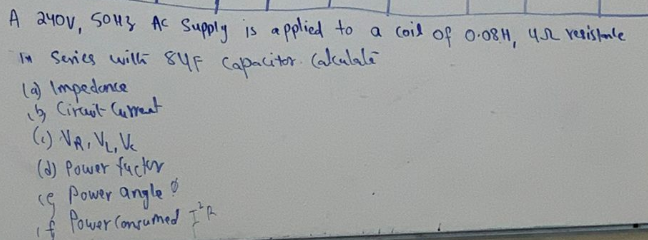 A 240V, 50Hz AC Supply is applied to a coil of 0.08H, 4Ω resistance
in Series with 8μF Capacitor. Calculate
(a) Impedance
(b) Circuit Current
(c) VR, VL, Vc
(d) Power factor
(e) Power angle φ
(f) Power Consumed I²R